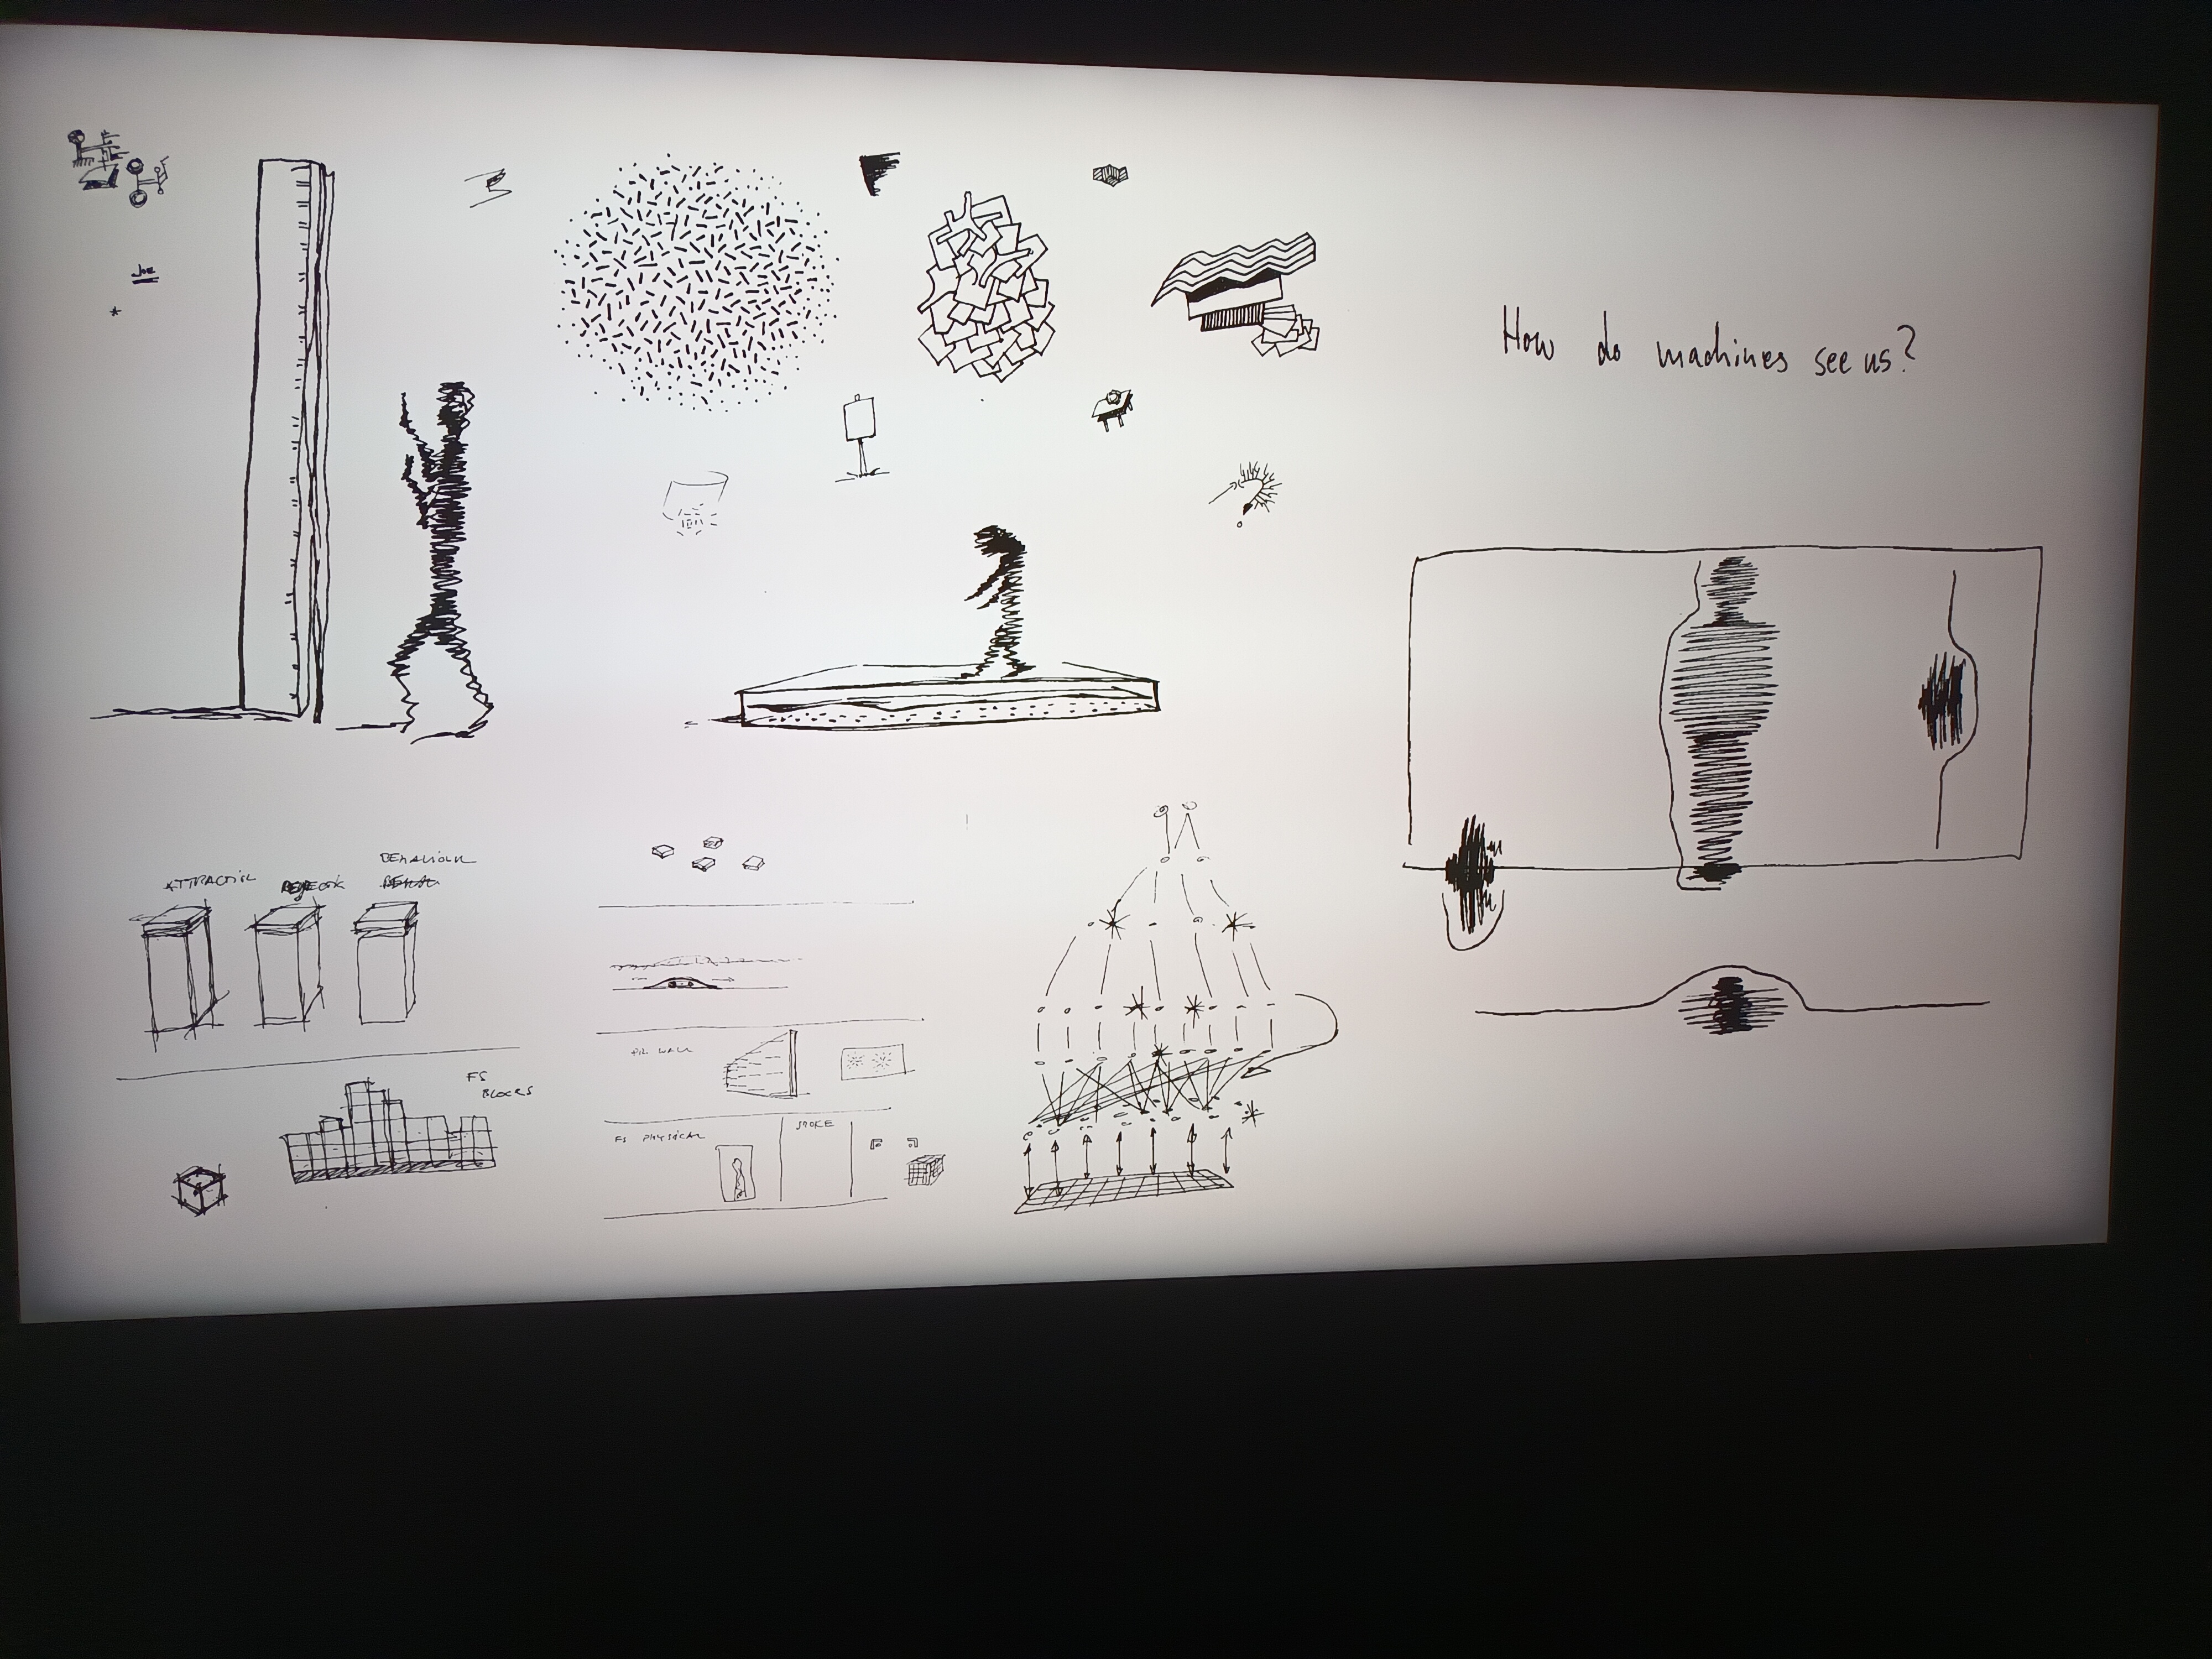 How do machines see us?
ATTRACTION
BEHAVIOUR
FS
BLOCKS
AIR WALL
FS PHYSICAL
SMOKE